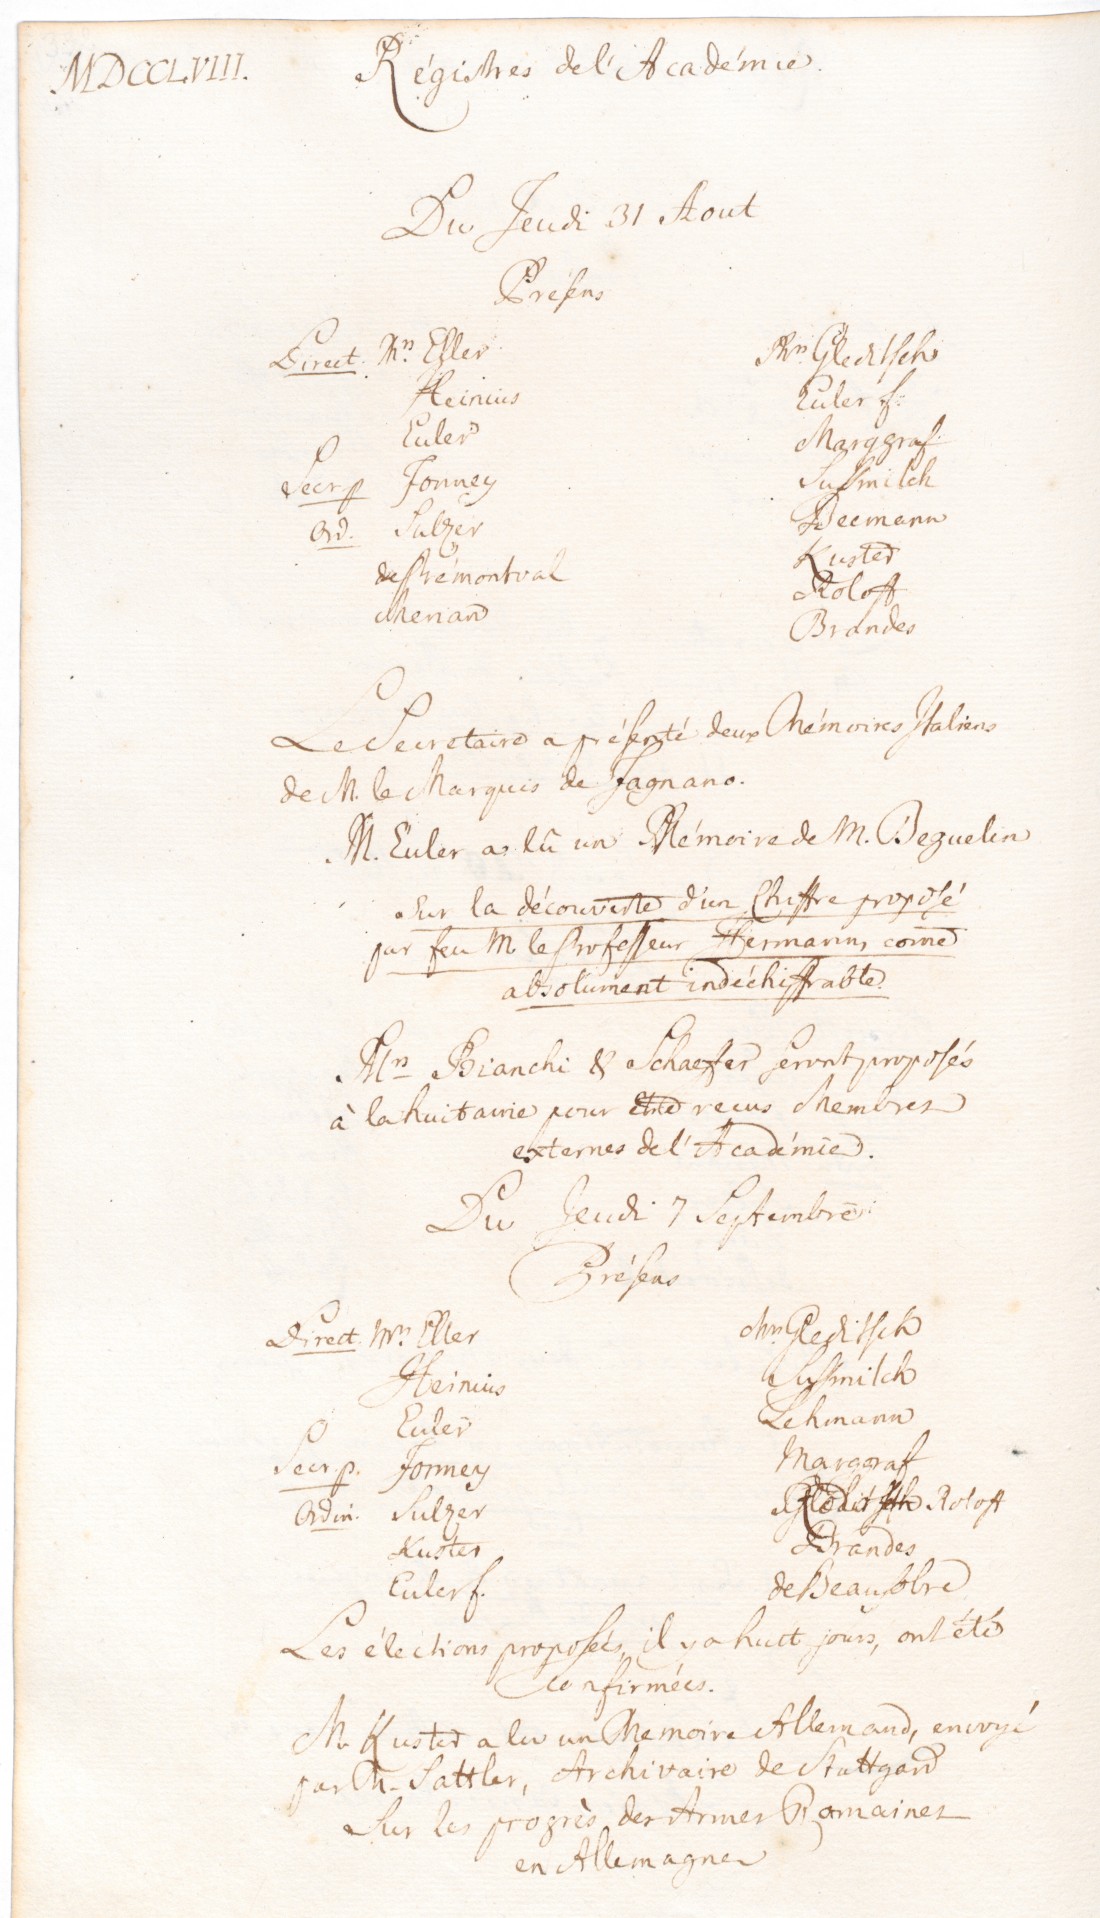 MDCCLVIII. Régistres de l'Académie.
Du Jeudi 31 Aout
Présens
Direct. Mrs. Eller
Heinius
Euler
Secr. p. Formey
Ord. Sulzer
de Prémontval
Merian
Mrs. Gleditsch
Euler f.
Marggraf.
Sussmilch
Becmann
Kuster
Roloff
Brandes
Le Secretaire a présenté deux Mémoires Italiens
de M. le Marquis de Fagnano.
M. Euler a lû un Mémoire de M. Beguelin
sur la découverte d'un Chiffre proposé
par feu M. le Professeur Hermann, come
absolument indéchiffrable.
Mrs Bianchi & Schaeffer seront proposés
à la huitaine pour être recus Membres
externes de l'Académie.
Du Jeudi 7 Septembre
Présens
Direct. Mrs. Eller
Heinius
Euler
Secr. p. Formey
Ordin. Sulzer
Kuster
Euler f.
Mrs. Gleditsch
Sussmilch
Lehmann
Margraf
Roloff
Brandes
de Beausobre
Les élections proposées, il y a huit jours, ont été
confirmées.
M. Kuster a lu un Memoire Allemand, envoyé
par M. Sattler, Archivaire de Stuttgard
Sur les progrès des Armes Romaines
en Allemagne